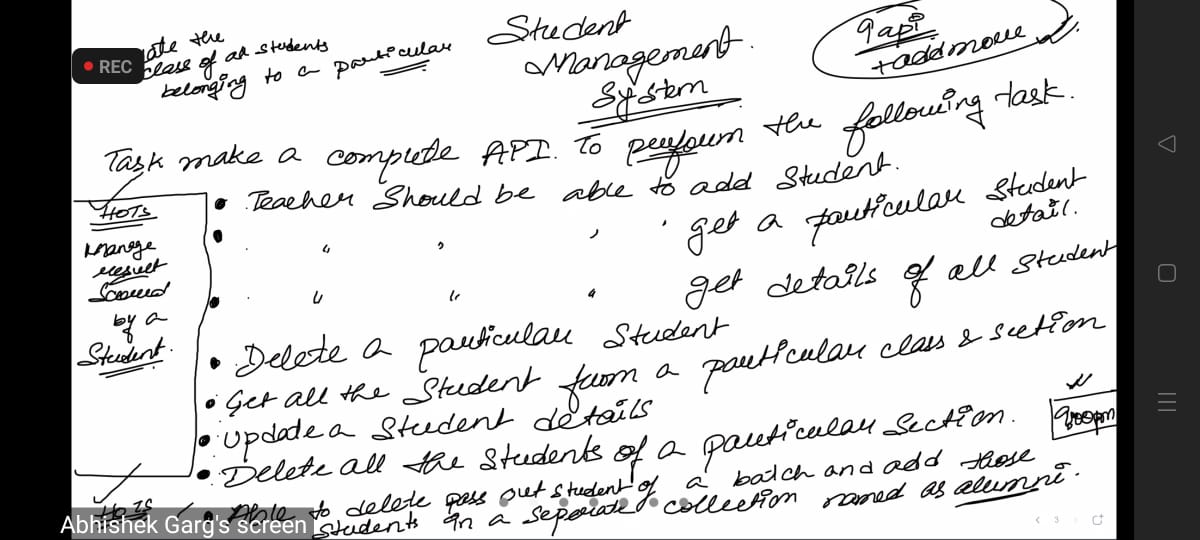 Student
Management
System
9 api
+ add more
ate the
class of all students
belonging to a particular
REC
Task make a complete API. To perform the following task.
HOTS
Manage
result
Scored
by a
Student.
• Teacher Should be able to add Student.
• " " " get a particular Student
detail.
• " " " get details of all Student
• Delete a particular Student
• Get all the Student from a particular class & section
• Update a Student details
• Delete all the Students of a particular Section.
9:00pm
HOTS
• Able to delete pass out student of a batch and add those
Students in a seperate collection named as alumni.
Abhishek Garg's screen
3